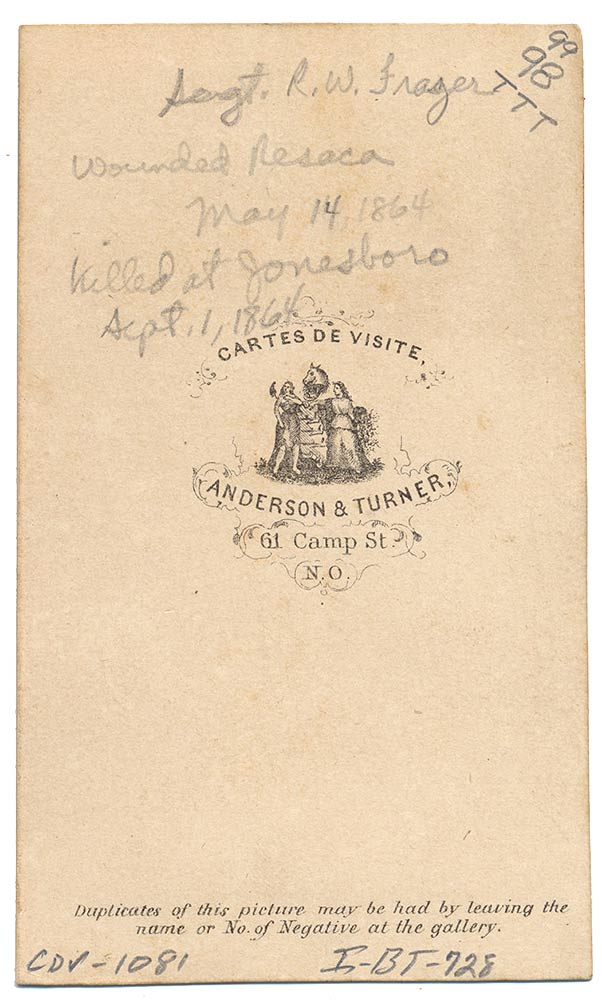 99
98
TTT
Sergt. R. W. Frazer
Wounded Resaca
May 14, 1864
Killed at Jonesboro
Sept. 1, 1864
CARTES DE VISITE,
ANDERSON & TURNER,
61 Camp St.
N.O.
Duplicates of this picture may be had by leaving the
name or No. of Negative at the gallery.
CDV-1081 I-BT-728